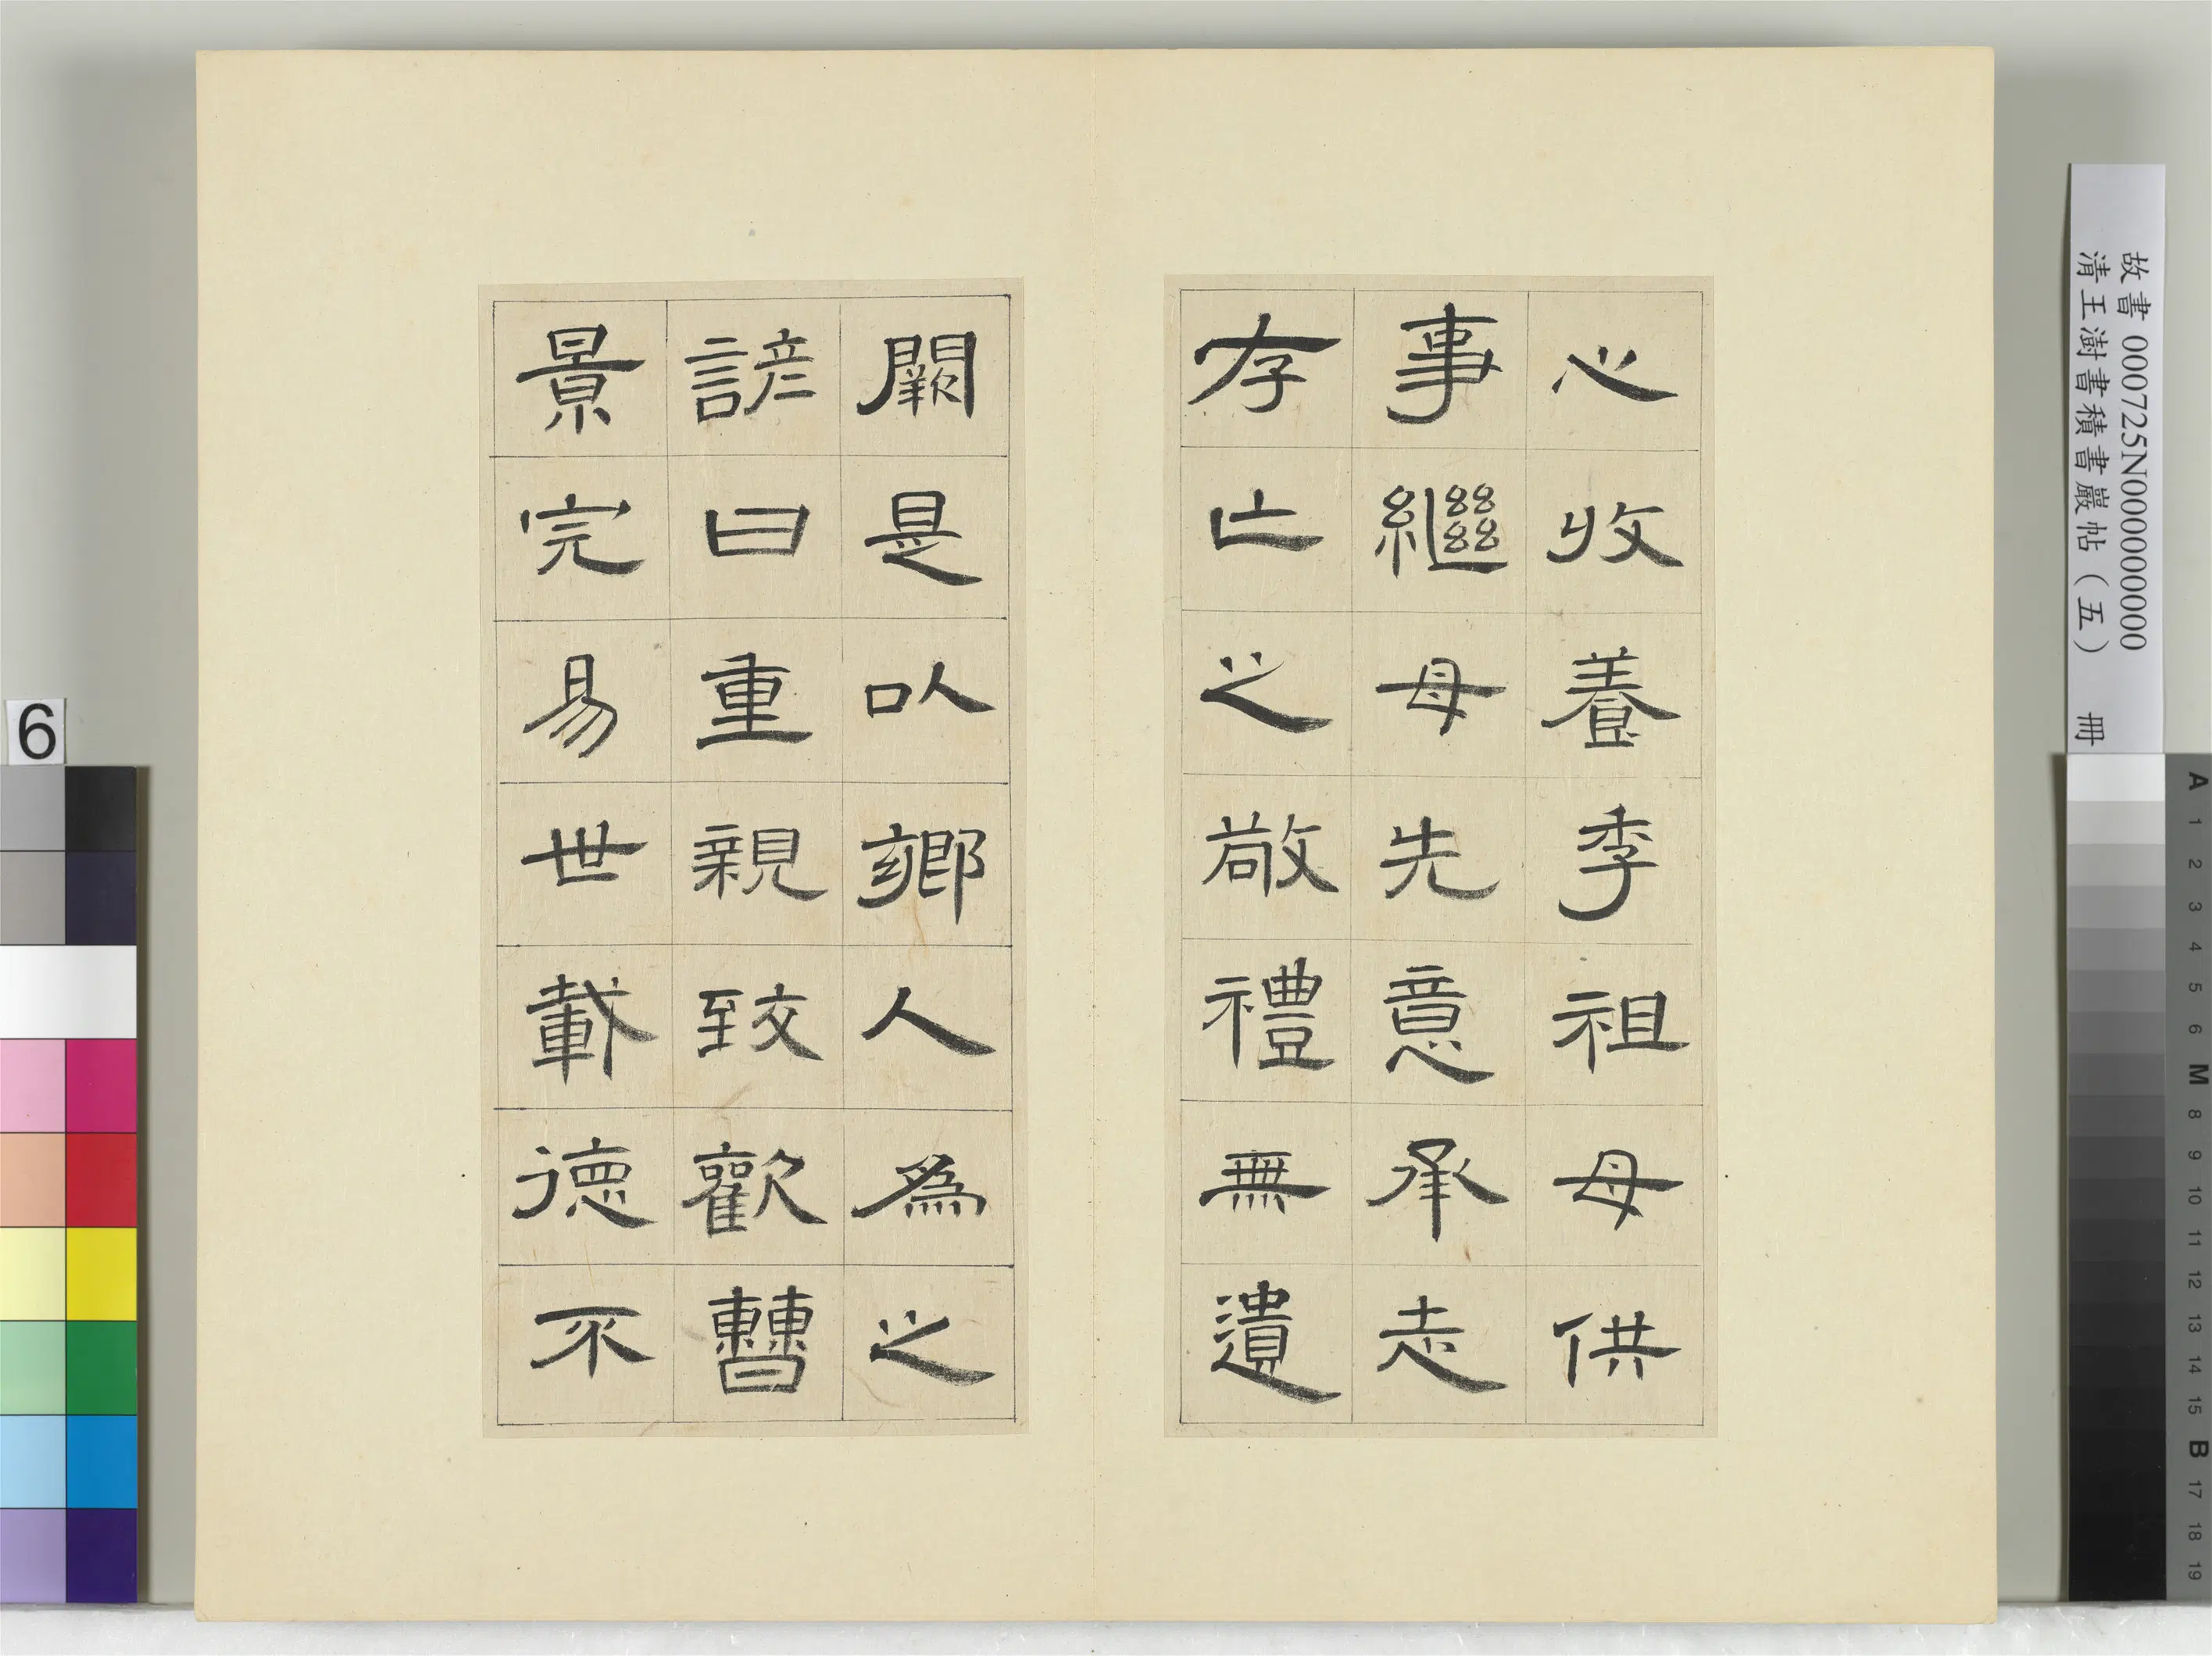 心收養季祖母供
事繼母先意承志
存亡之敬禮無遺
闕是以鄉人為之
諺曰重親致歡曹
景完易世載德不
故書000725N000000000
清王澍書積書巖帖(五) 冊
6
A 1 2 3 4 5 6 M 8 9 10 11 12 13 14 15 B 17 18 19